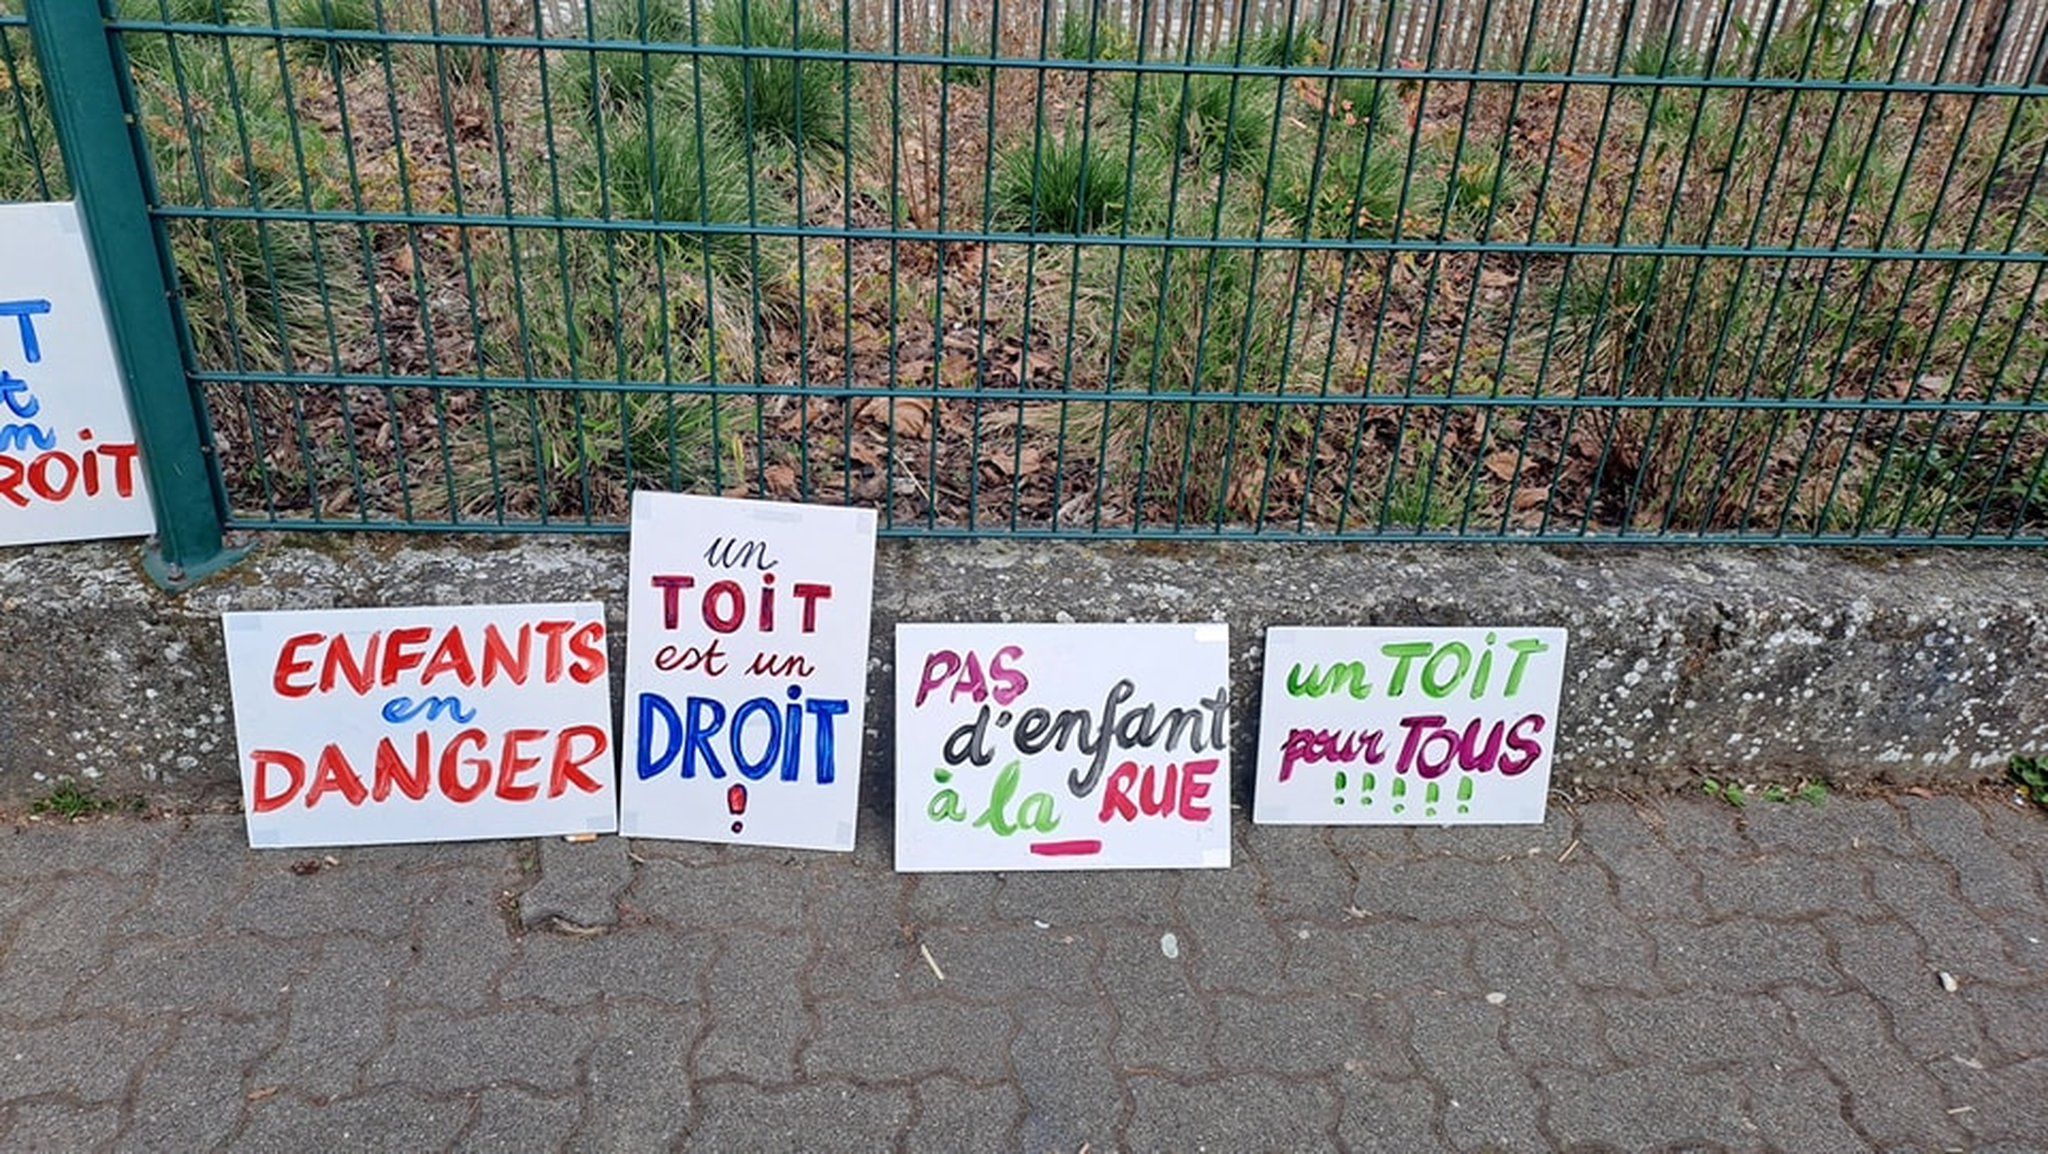 T
t
n
ROiT
ENFANTS
en
DANGER
un
TOiT
est un
DROiT
!
PAS
d'enfant
à la RUE
un TOiT
pour TOUS
!!!!!